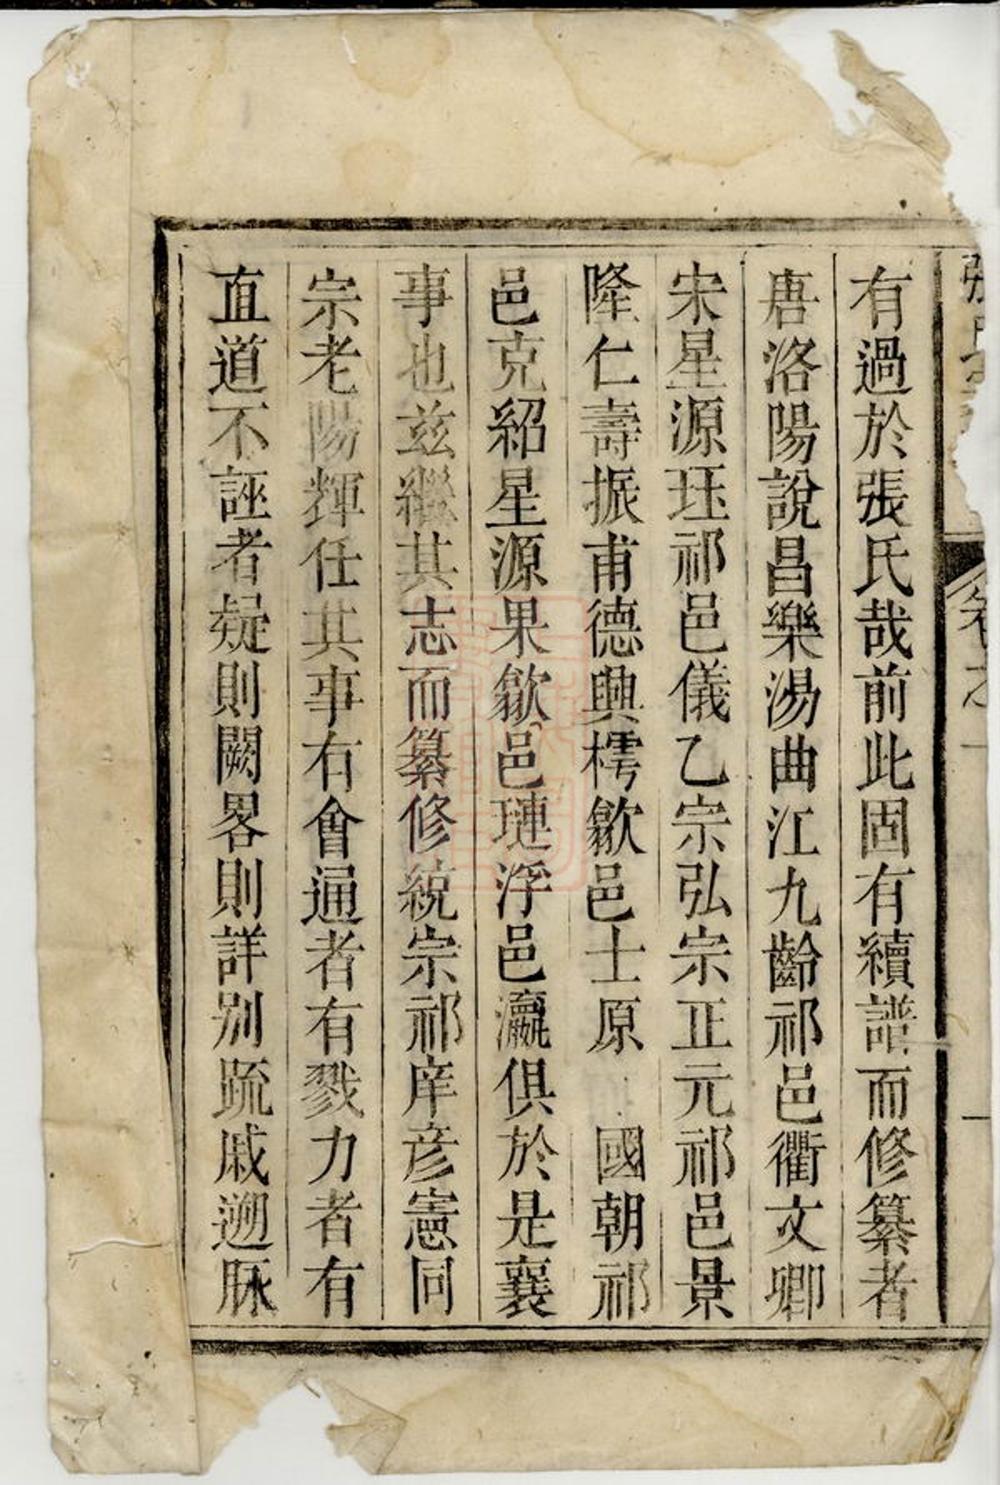 張氏
卷之一
一
有過於張氏哉前此固有續譜而修纂者
唐洛陽說昌樂湯曲江九齡祁邑衢文卿
宋星源珏祁邑儀乙宗弘宗正元祁邑景
隆仁壽振甫德興樗歙邑士原 國朝祁
邑克紹星源果歙邑璉浮邑瀛俱於是襄
事也兹繼其志而纂修統宗祁庠彥憲同
宗老陽輝任其事有會通者有戮力者有
直道不誣者疑則闕畧則詳别䟽戚遡脉